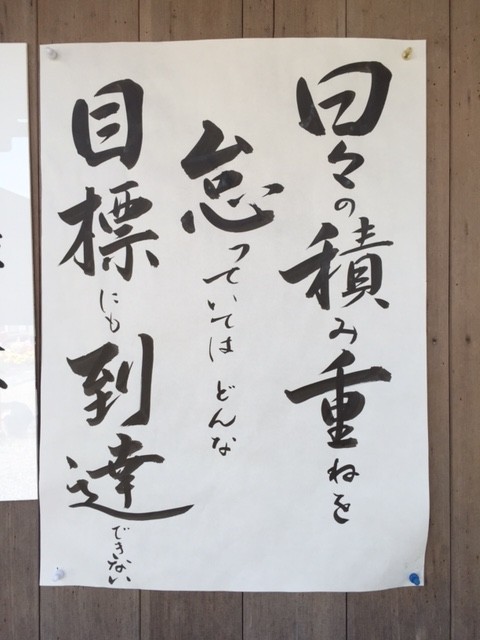 日々の積み重ねを
怠っていては どんな
目標にも到達できない